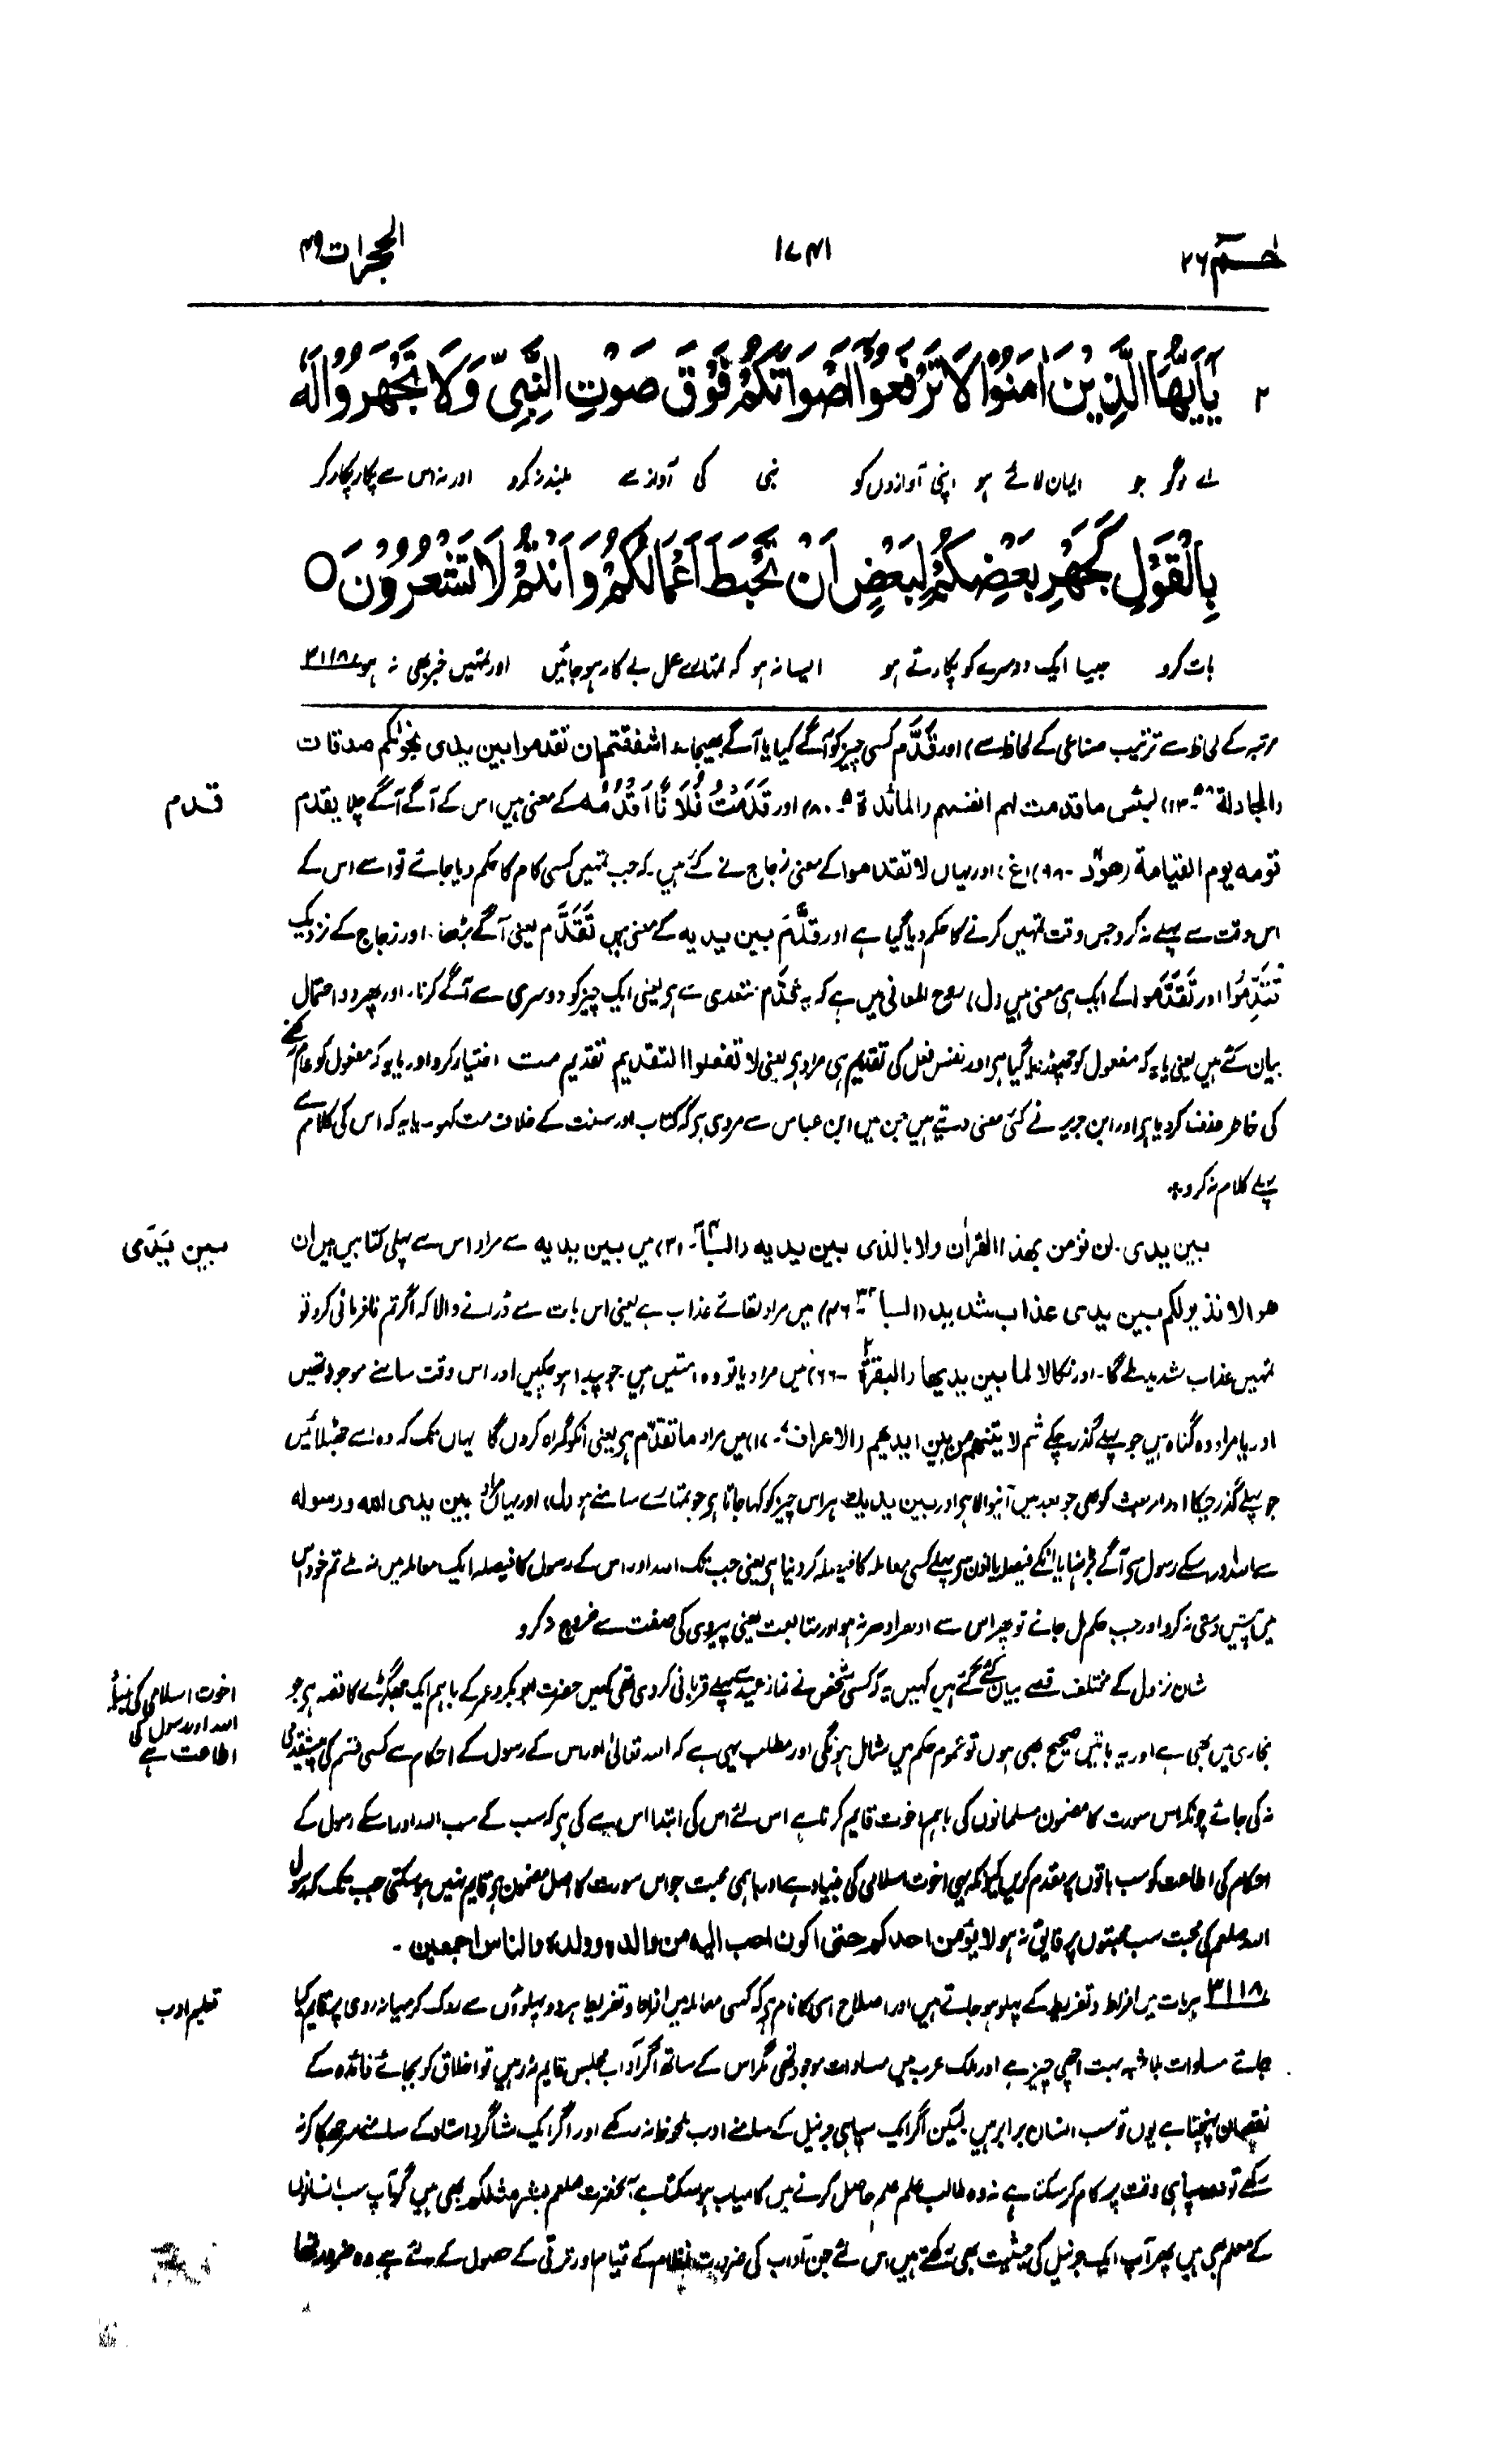 حٰمٓ ۲۶
۱۷۴۱
الحجرات ۴۹
۲ يٰٓاَيُّهَا الَّذِيْنَ اٰمَنُوْا لَا تَرْفَعُوْٓا اَصْوَاتَكُمْ فَوْقَ صَوْتِ النَّبِيِّ وَلَا تَجْهَرُوْا لَهٗ
اے لوگو جو ایمان لائے ہو اپنی آوازوں کو نبی کی آواز سے بلند نہ کرو اور نہ اس سے پکار پکار کر
بِالْقَوْلِ كَجَهْرِ بَعْضِكُمْ لِبَعْضٍ اَنْ تَحْبَطَ اَعْمَالُكُمْ وَاَنْتُمْ لَا تَشْعُرُوْنَ ○
بات کرو جیسا ایک دوسرے کو پکارتے ہو ایسا نہ ہو کہ تمہارے عمل بے کار ہو جائیں اور تمہیں خبر بھی نہ ہو ۳۱۱۸
مرتبہ کے لحاظ سے ترتیب صناعی کے لحاظ سے) اور قَدَّم کسی چیز کو آگے کیا یا آگے بھیجا ءاشفقتم ان تقدموا بین یدی نجوٰىکم صدقات
(المجادلة ۵۸۔۱۳) لبئس ما قدمت لہم انفسہم (المائدة ۵۔۸۰) اور قَدَمْتُ فُلَانًا اَقْدُمُه کے معنی ہیں اس کے آگے آگے چلا یقدم
قدم
قومہ یوم القیامة (ھود ۔۹۸) (غ) اور یہاں لا تقدموا کے معنی زجاج نے کئے ہیں۔ کہ جب تمہیں کسی کام کا حکم دیا جائے تو اسے اس کے
اس وقت سے پہلے نہ کرو جس وقت تمہیں کرنے کا حکم دیا گیا ہے اور قَدَّمَ بین یدیہ کے معنی ہیں تَقَدَّم یعنی آگے بڑھا۔ اور زجاج کے نزدیک
تُقَدِّمُوا اور تَقَدَّمُوا کے ایک ہی معنی ہیں (ل) روح المعانی میں ہے کہ یہ قَدَّم متعدی سے ہے یعنی ایک چیز کو دوسری سے آگے کرنا۔ اور پھر دو احتمال
بیان کئے ہیں یعنی یا یہ کہ مفعول کو چھوڑ دیا گیا ہے اور نفس فعل کی تقدیم ہی مراد ہے یعنی لا تفعلوا التقدیم تقدیم مت اختیار کرو اور یا یوں کہ مفعول کو عام رکھنے
کی خاطر حذف کر دیا ہے اور ابن جریر نے کئی معنی دیئے ہیں جن میں ابن عباس سے مروی ہے کہ کتاب اور سنت کے خلاف مت کہو۔ یا یہ کہ اس کی کلام سے
پہلے کلام نہ کرو ٭
بین یدی۔ لن نؤمن بھذا القراٰن ولا بالذی بین یدیہ (السبا ۳۴۔۳۱) میں بین یدیہ سے مراد اس سے پہلی کتابیں ہیں ان
بین یَدَی
ھو الا نذیر لکم بین یدی عذاب شدید (السبا ۳۴۔۴۶) میں مراد لقائے عذاب ہے یعنی اس بات سے ڈرانے والا کہ اگر تم نافرمانی کرو تو
تمہیں عذاب شدید ملے گا۔ اور نکالا لما بین یدیھا (البقرة ۲۔۶۶) میں مراد یا تو وہ امتیں ہیں۔ جو پیدا ہو چکیں اور اس وقت سامنے موجود تھیں
اور یا مراد وہ گناہ ہیں جو پہلے گذر چکے ثم لاٰتینہم من بین ایدیھم (الاعراف ۷۔۱۷) میں مراد ما تقدم ہے یعنی انکو گمراہ کروں گا یہاں تک کہ وہ اسے جھٹلائیں
جو پہلے گذر چکا اور امر بعث کو بھی جو بعد میں آنیوالا ہے اور بین یدیک ہر اس چیز کو کہا جاتا ہے جو تمہارے سامنے ہو (ل) اور یہاں مراد بین یدی اللہ ورسولہ
سے اللہ اور اس کے رسول سے آگے بڑھنا یا انکے فیصلہ یا اذن سے پہلے کسی معاملہ کا فیصلہ کر دینا ہے یعنی جب تک اللہ اور اس کے رسول کا فیصلہ ایک معاملہ میں نہ ملے تم خود اس
میں پیش دستی نہ کرو اور جب حکم مل جائے تو پھر اس سے ادھر ادھر نہ ہو اور متابعت یعنی پیروی کی صفت سے خروج نہ کرو
شان نزول کے مختلف قصے بیان کئے گئے ہیں کہیں یہ کہ کسی شخص نے نماز عید سے پہلے قربانی کر دی تھی کہیں حضرت ابوبکر و عمر کے باہم ایک جھگڑے کا قصہ ہے جو
اخوت اسلامی کی بنیاد
اللہ اور رسول کی
اطاعت ہے
بخاری میں بھی ہے اور یہ باتیں صحیح بھی ہوں تو عموم حکم میں شامل ہونگی اور مطلب یہی ہے کہ اللہ تعالیٰ اور اس کے رسول کے احکام سے کسی قسم کی پیشقدمی
نہ کی جائے چونکہ اس سورت کا مضمون مسلمانوں کی باہم اخوت قایم کرنا ہے اس لئے اس کی ابتدا اس سے کی ہے کہ سب کے سب اللہ اور اسکے رسول کے
احکام کی اطاعت کو سب باتوں پر مقدم کریں کیونکہ یہی اخوت اسلامی کی بنیاد ہے اور باہمی محبت جو اس سورت کا اصل مضمون ہے قایم نہیں ہو سکتی جب تک کہ رسول
اللہ صلعم کی محبت سب محبتوں پر فایق نہ ہو لا یؤمن احدکم حتی اکون احب الیہ من والدہ وولدہ والناس اجمعین۔
۳۱۱۸ ہر بات میں افراط و تفریط کے پہلو ہو جاتے ہیں اور اصلاح اسی کا نام ہے کہ کسی معاملہ میں افراط و تفریط ہر دو پہلوؤں سے روک کر میانہ روی پر قایم کیا
تعلیم ادب
جائے مساوات بلاشبہ بہت اچھی چیز ہے اور ملک عرب میں مساوات موجود تھی مگر اس کے ساتھ اگر آداب مجلس قایم نہ رہیں تو اخلاق کو بجائے فائدہ کے
نقصان پہنچتا ہے یوں تو سب انسان برابر ہیں لیکن اگر ایک سپاہی جرنیل کے سامنے ادب ملحوظ نہ رکھے اور اگر ایک شاگرد استاد کے سامنے سر جھکا کر نہ
رکھے تو نہ وہ سپاہی وقت پر کام کر سکتا ہے نہ وہ طالب علم علم حاصل کرنے میں کامیاب ہو سکتا ہے آنحضرت صلعم بشر مثلکم بھی ہیں گو آپ سب انسانوں
کے معلم بھی ہیں پھر آپ ایک جرنیل کی حیثیت بھی رکھتے ہیں اس لئے جن آداب کی ضرورت نظام کے قیام اور ترقی کے حصول کے لئے ہے وہ ضرور تھا